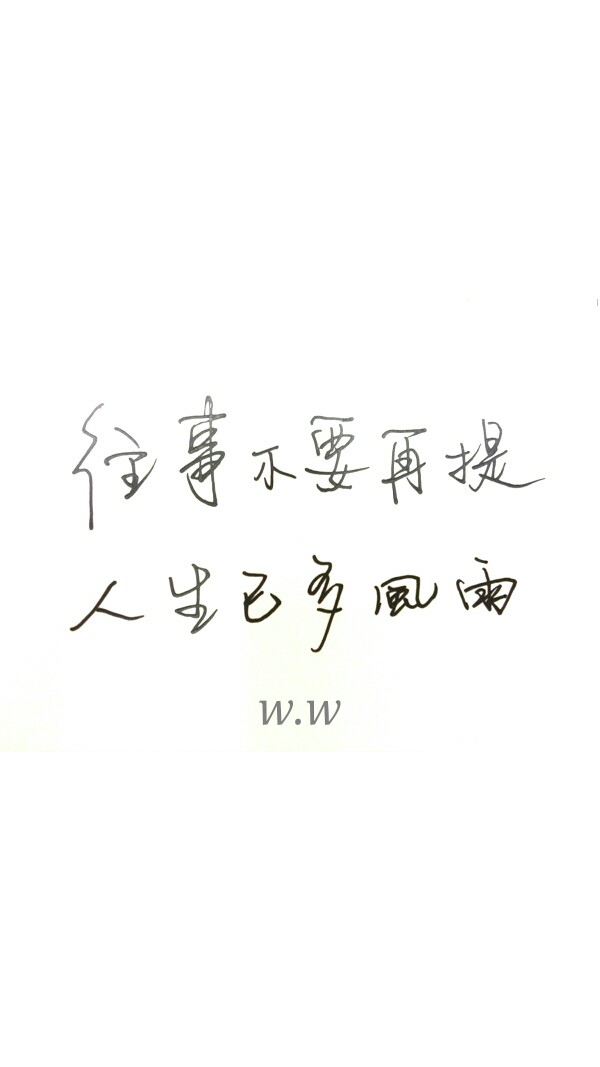 往事不要再提
人生已多風雨
w.w